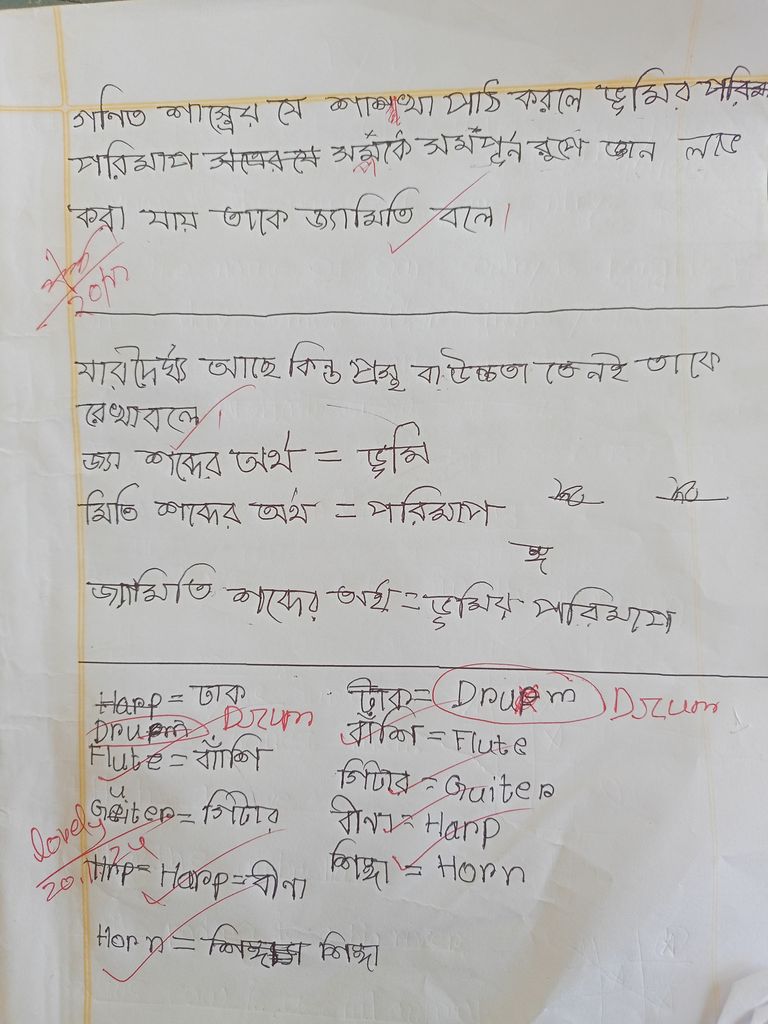 গনিত শাস্ত্রের যে শাখা পাঠ করলে ভূমির
পরিমাপ সম্পর্কে সম্পূর্ন রুপে জ্ঞান লাভ
করা যায় তাকে জ্যামিতি বলে।
যার দৈর্ঘ্য আছে কিন্তু প্রস্থ বা উচ্চতা নেই তাকে
রেখা বলে।
জ্যা শব্দের অর্থ = ভূমি
মিতি শব্দের অর্থ = পরিমাপ
জ্যামিতি শব্দের অর্থ = ভূমির পরিমাপ
Harp = ঢাক
Drum Drum
Flute = বাঁশি
Guiter = গিটার
lovely
Harp = বীনা
Horn = শিঙ্গা
ঢাক = Drum Drum
বাঁশি = Flute
গিটার = Guiter
বীনা = Harp
শিঙ্গা = Horn